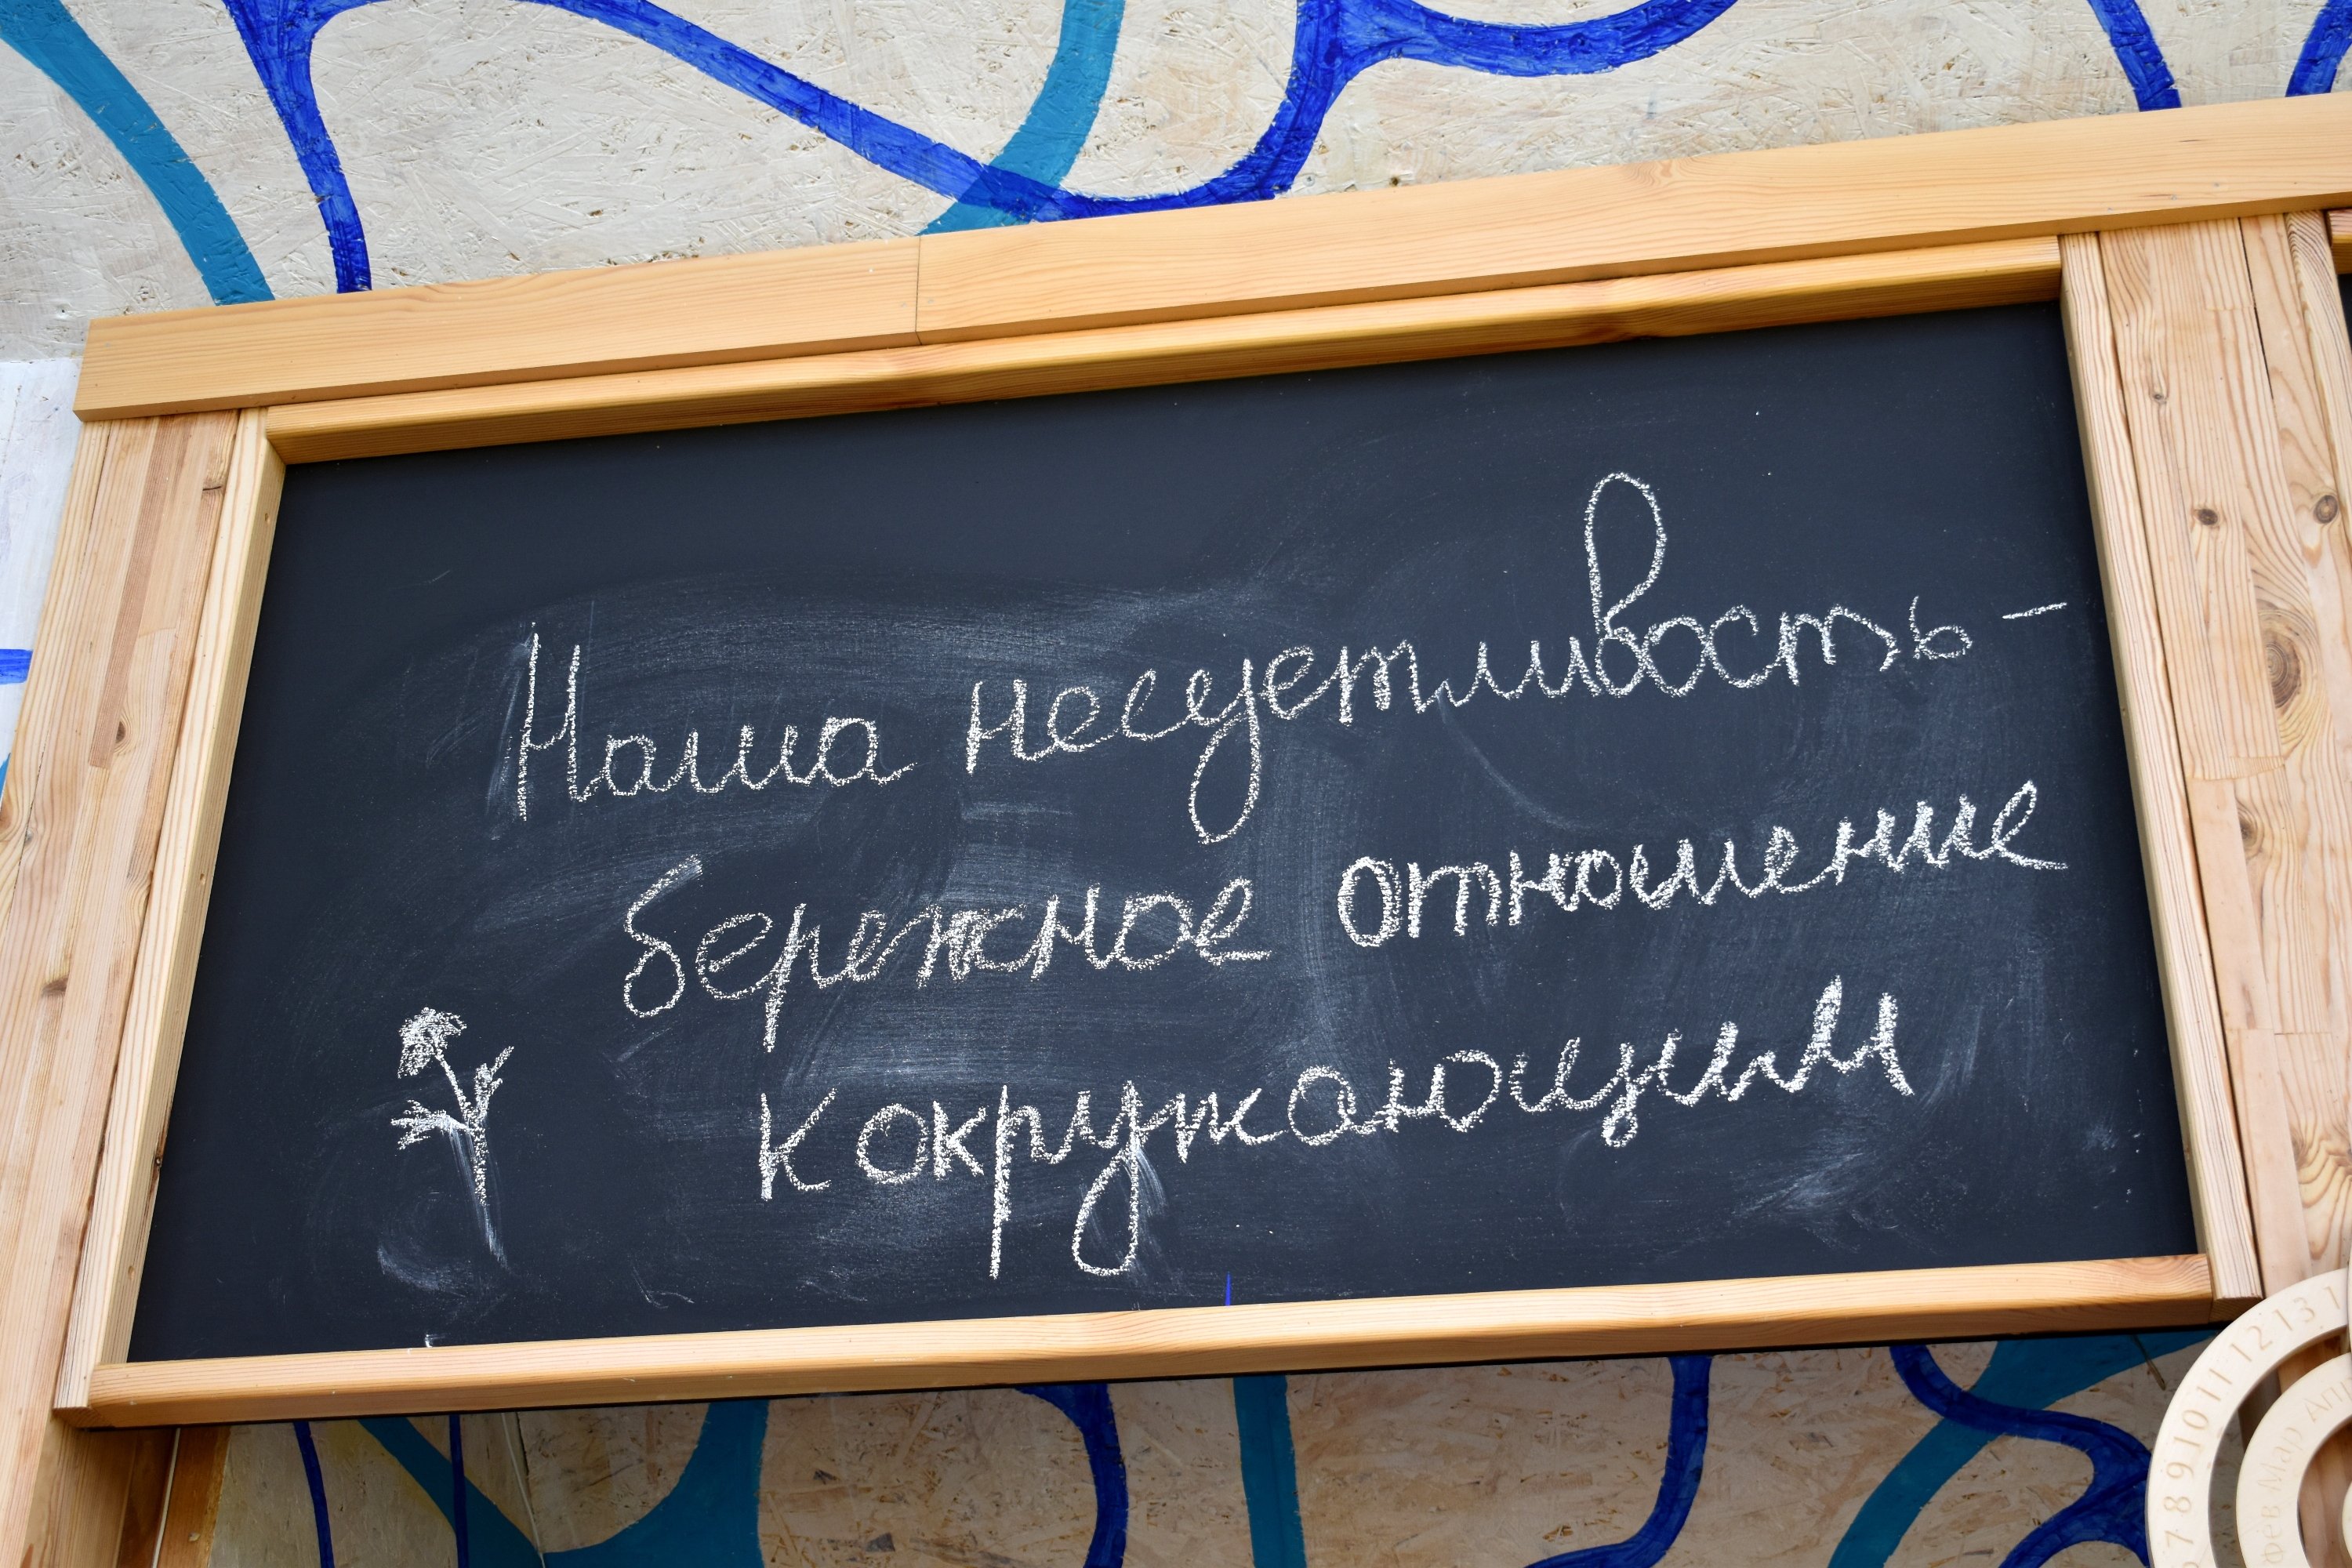 Наша несуетливость -
бережное отношение
к окружающим
7 8 9 10 11 12 13 1
рев Мар Апр